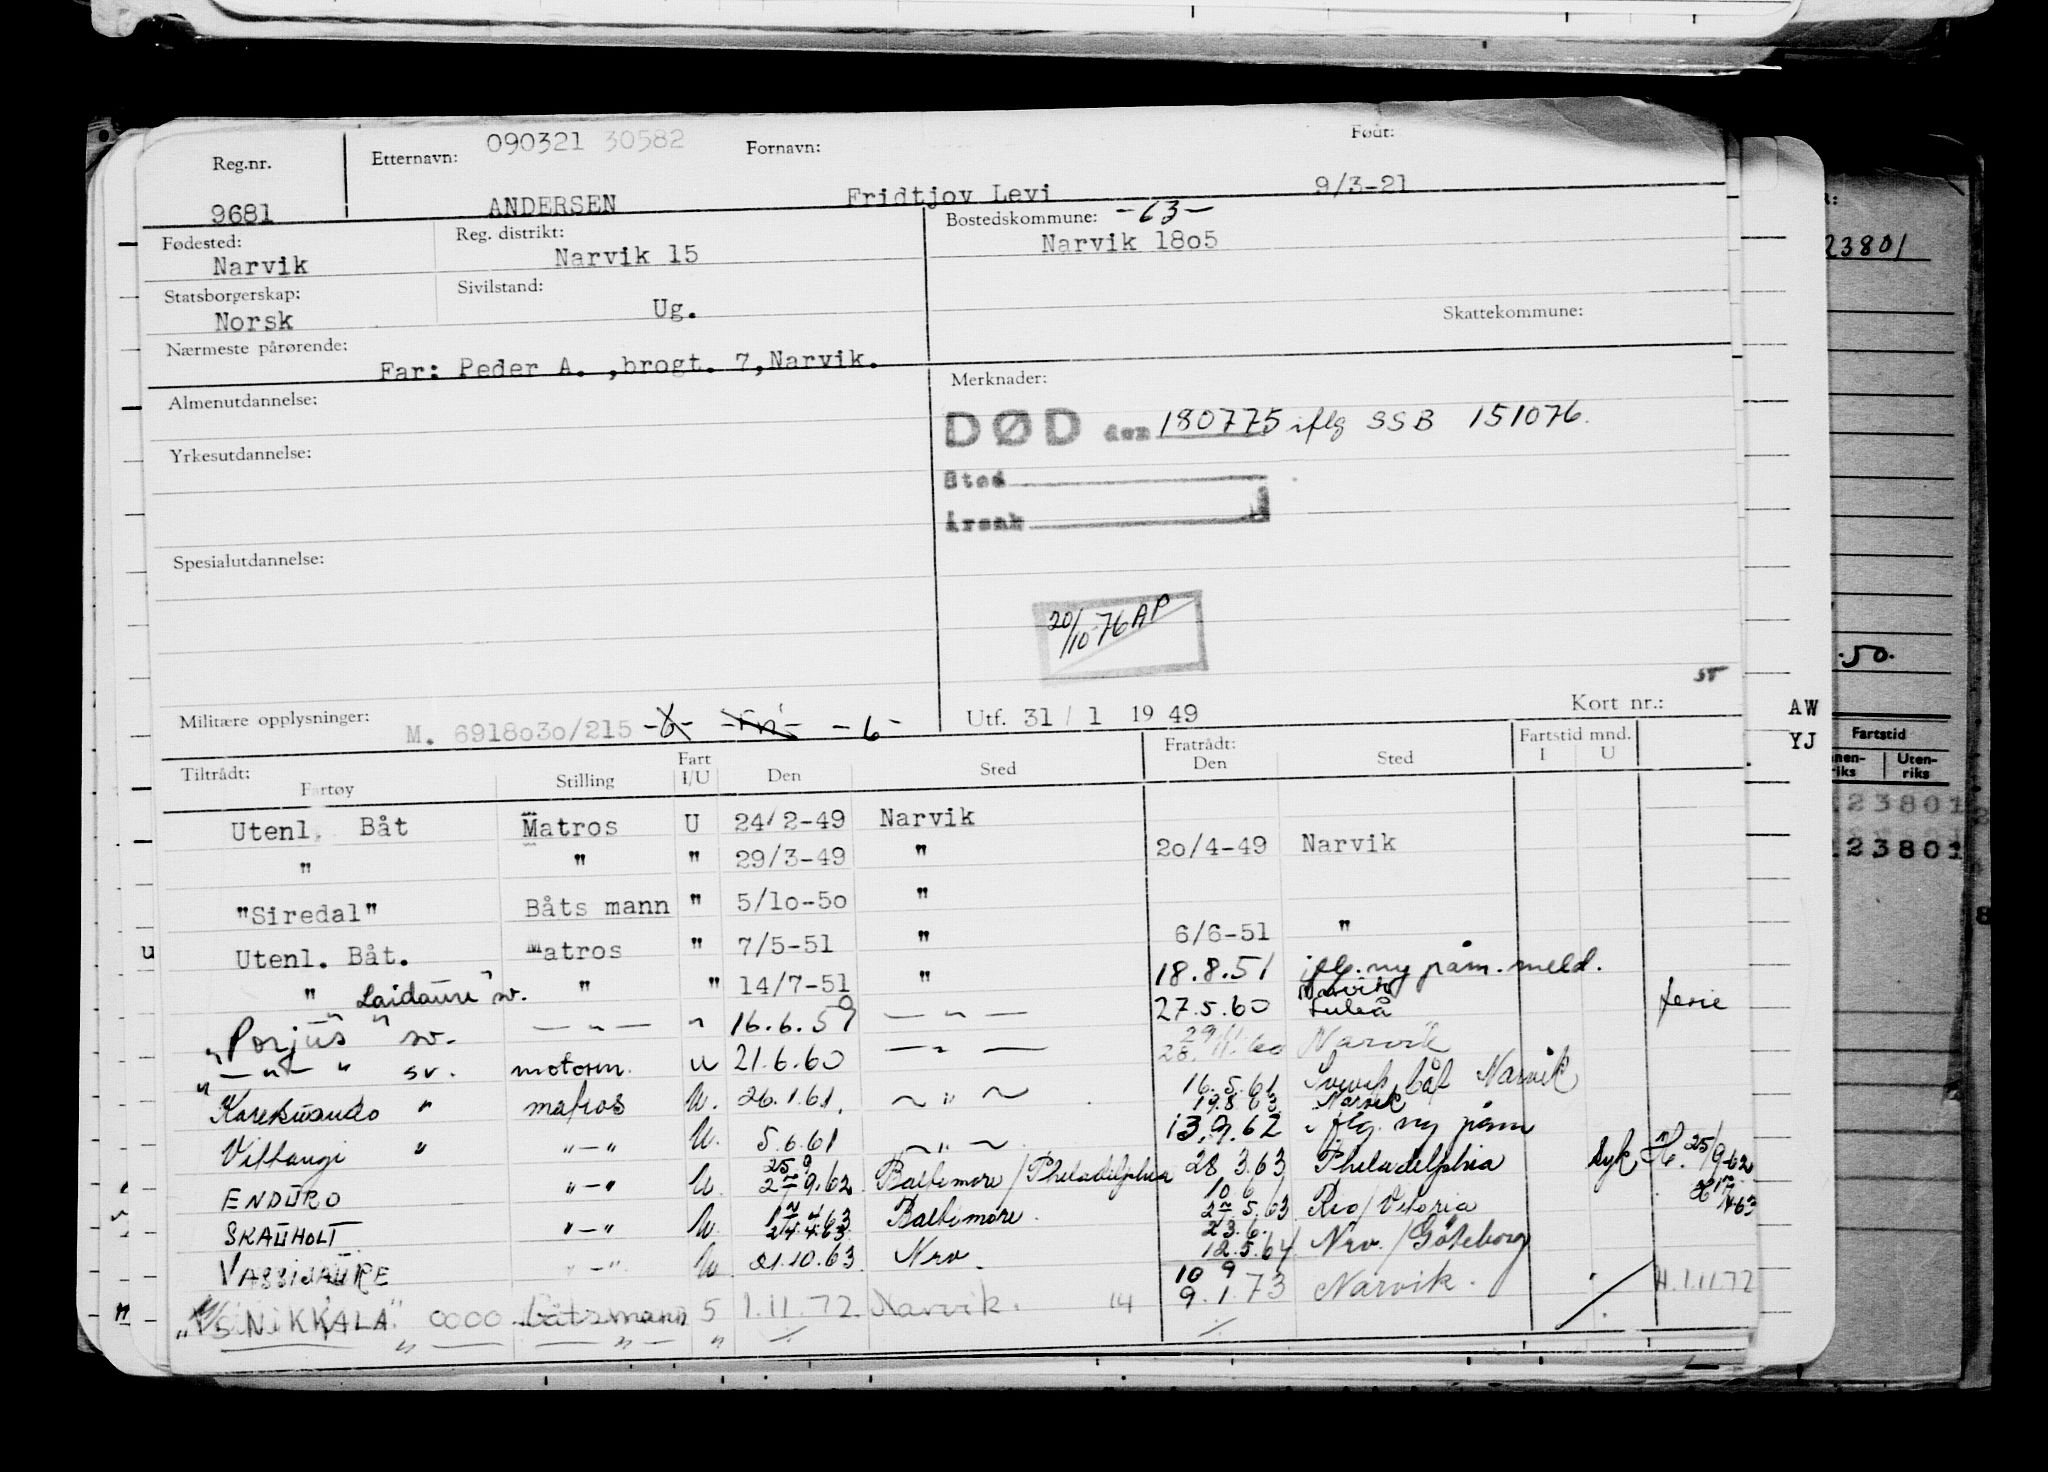 090321 30582
Reg.nr. Etternavn: Fornavn: Født:
9681 ANDERSEN Fridtjov Levi 9/3-21
Fødested: Reg. distrikt: Bostedskommune: -63-
Narvik Narvik 15 Narvik 18o5
Statsborgerskap: Sivilstand:
Norsk Ug. Skattekommune:
Nærmeste pårørende:
Far: Peder A. ,brogt. 7,Narvik.
Almenutdannelse: Merknader:
DØD den 180775 iflg SSB 151076.
Yrkesutdannelse:
Sted
Årsak
Spesialutdannelse:
20/10-76 AP
Militære opplysninger: M. 6918o3o/215 -6- -6- Utf. 31/1 1949 Kort nr.:
Tiltrådt: Fratrådt: Fartstid mnd.
Fartøy Stilling Fart I/U Den Sted Den Sted I U
Utenl. Båt Matros U 24/2-49 Narvik
" " " 29/3-49 " 2o/4-49 Narvik
"Siredal" Båts mann " 5/1o-5o "
Utenl. Båt. Matros " 7/5-51 " 6/6-51 "
" " " 14/7-51 " 18.8.51 iflg. ny påm. meld.
"Laidaure" sv. 16.6.59 — " — 27.5.60 Narvik Luleå ferie
"Porjus" sv.
— " — " sv. motorm. U 21.6.60 — " — 28.11.60 Narvik
Karesuando " matros U. 26.1.61. ~ " ~ 16.5.61 båt Narvik
19.8.63 Narvik
Vittangi " "—" U. 5.6.61 ~ " ~ 13.9.62 iflg. ny påm
ENDURO "—" U. 25 9 27.9.62 Baltimore/Philadelphia 28 3.63 Philadelphia syk H. 25/9-62
SKAUHOLT "—" U. 24.4.63 Baltimore. 10 6 27.5.63 Rio/Vitoria
VASSIJAURE "—" U. 01.10.63 Nrv. 23.6. 12.5.64 Nrv./Göteborg
"NIKKALA" 0000 båtsmann 5 1.11.72 Narvik. 14 10 9 9.1.73 Narvik. H.1.11.72
" — — " — "
23801
.50.
AW
YJ
Fartstid
Uten-
riks
23801
23801